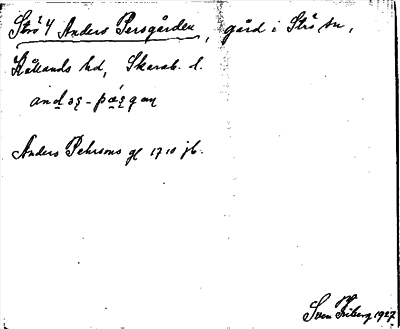 Strö 4 Anders Persgården, gård i Strö sn,
Kållands hd, Skarab. l.
Anders Pehrsons gd 1710 jb.
Sven Friberg 1927